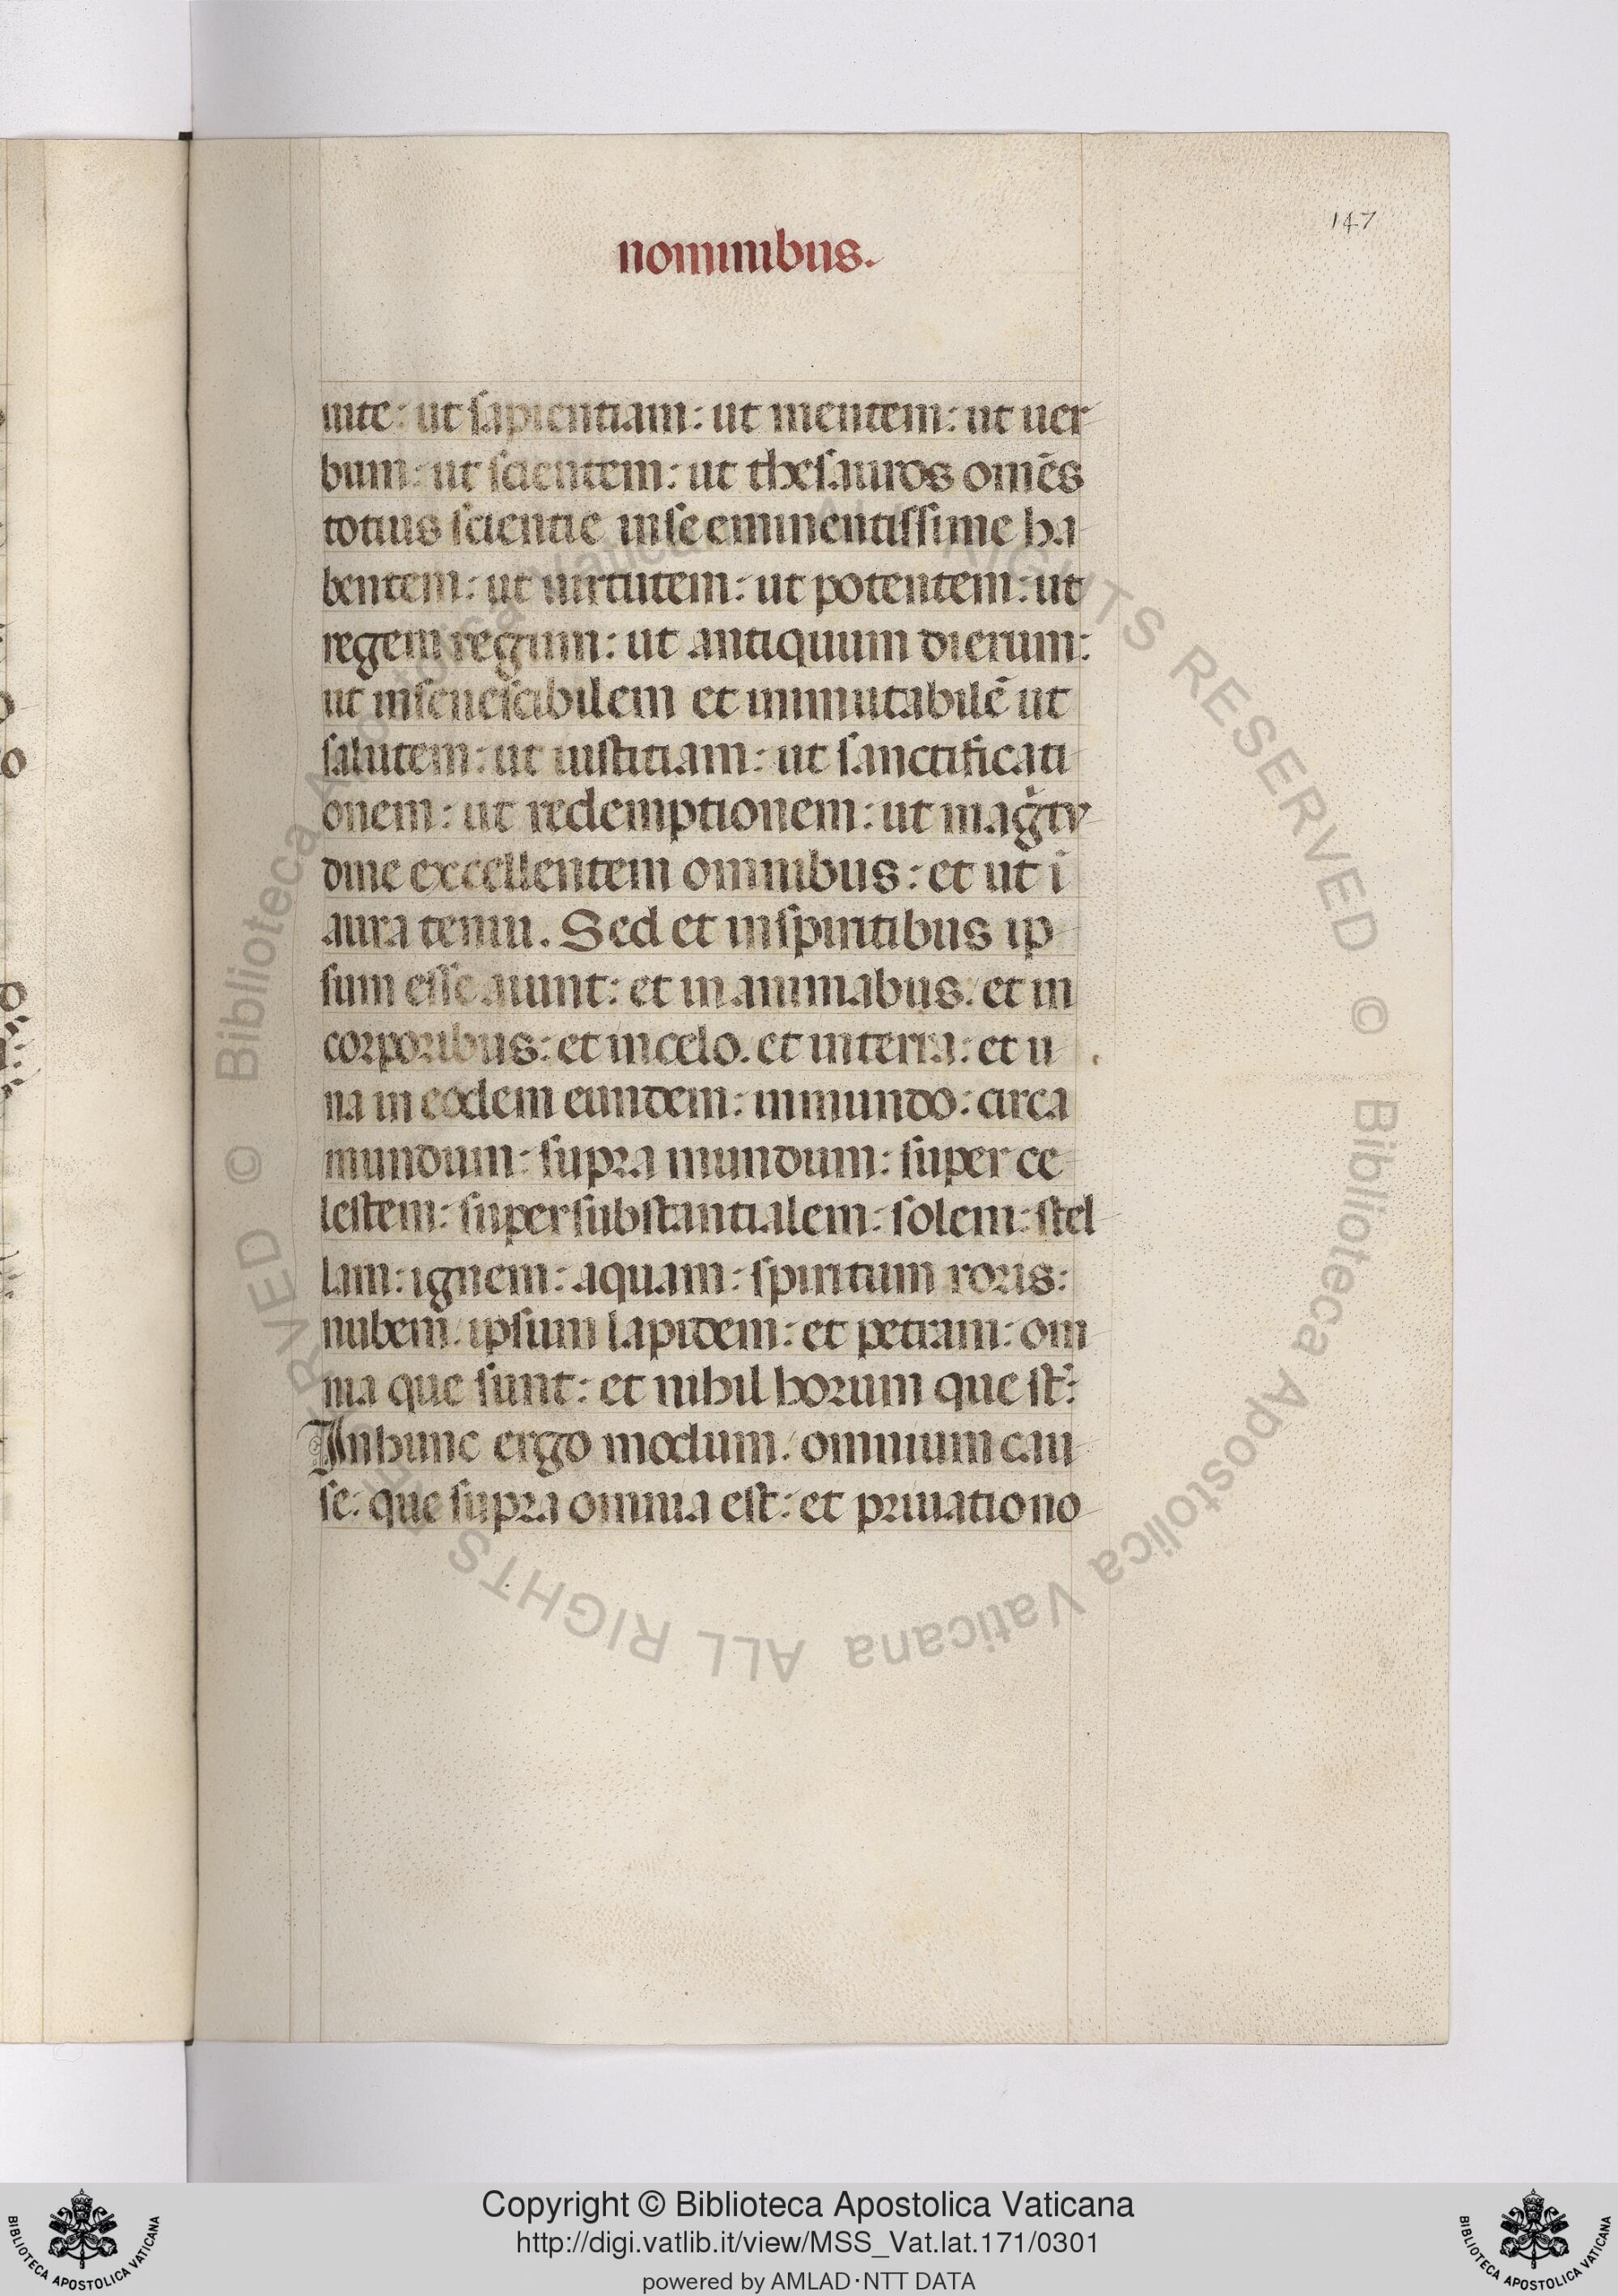 147
nominibus.
uite: ut sapientiam: ut mentem: ut uer
bum: ut scientem: ut thesauros omēs
totius scientie inse eminentissime ha
bentem: ut uirtutem: ut potentem: ut
regem regum: ut antiquum dierum:
ut insenescibilem et immutabilē ut
salutem: ut iustitiam: ut sanctificati
onem: ut redemptionem: ut mag̃tv
dine excellentem omnibus: et ut i
aura tenui. Sed et inspiritibus ip
sum esse aiunt: et in animabus: et in
corporibus: et incelo. et interra: et u
na in eodem eundem: inmundo: circa
mundum: supra mundum: super ce
lestem: supersubstantialem: solem: stel
lam: ignem: aquam: spiritum roris:
nubem: ipsum lapidem: et petram: om
nia que sunt: et nihil horum que st̄:
Inhunc ergo modum: omnium cau
se: que supra omnia est: et priuatio no
© Biblioteca Apostolica Vaticana ALL RIGHTS RESERVED
© Biblioteca Apostolica Vaticana ALL RIGHTS RESERVED
Copyright © Biblioteca Apostolica Vaticana
http://digi.vatlib.it/view/MSS_Vat.lat.171/0301
powered by AMLAD·NTT DATA
BIBLIOTECA APOSTOLICA VATICANA
BIBLIOTECA APOSTOLICA VATICANA